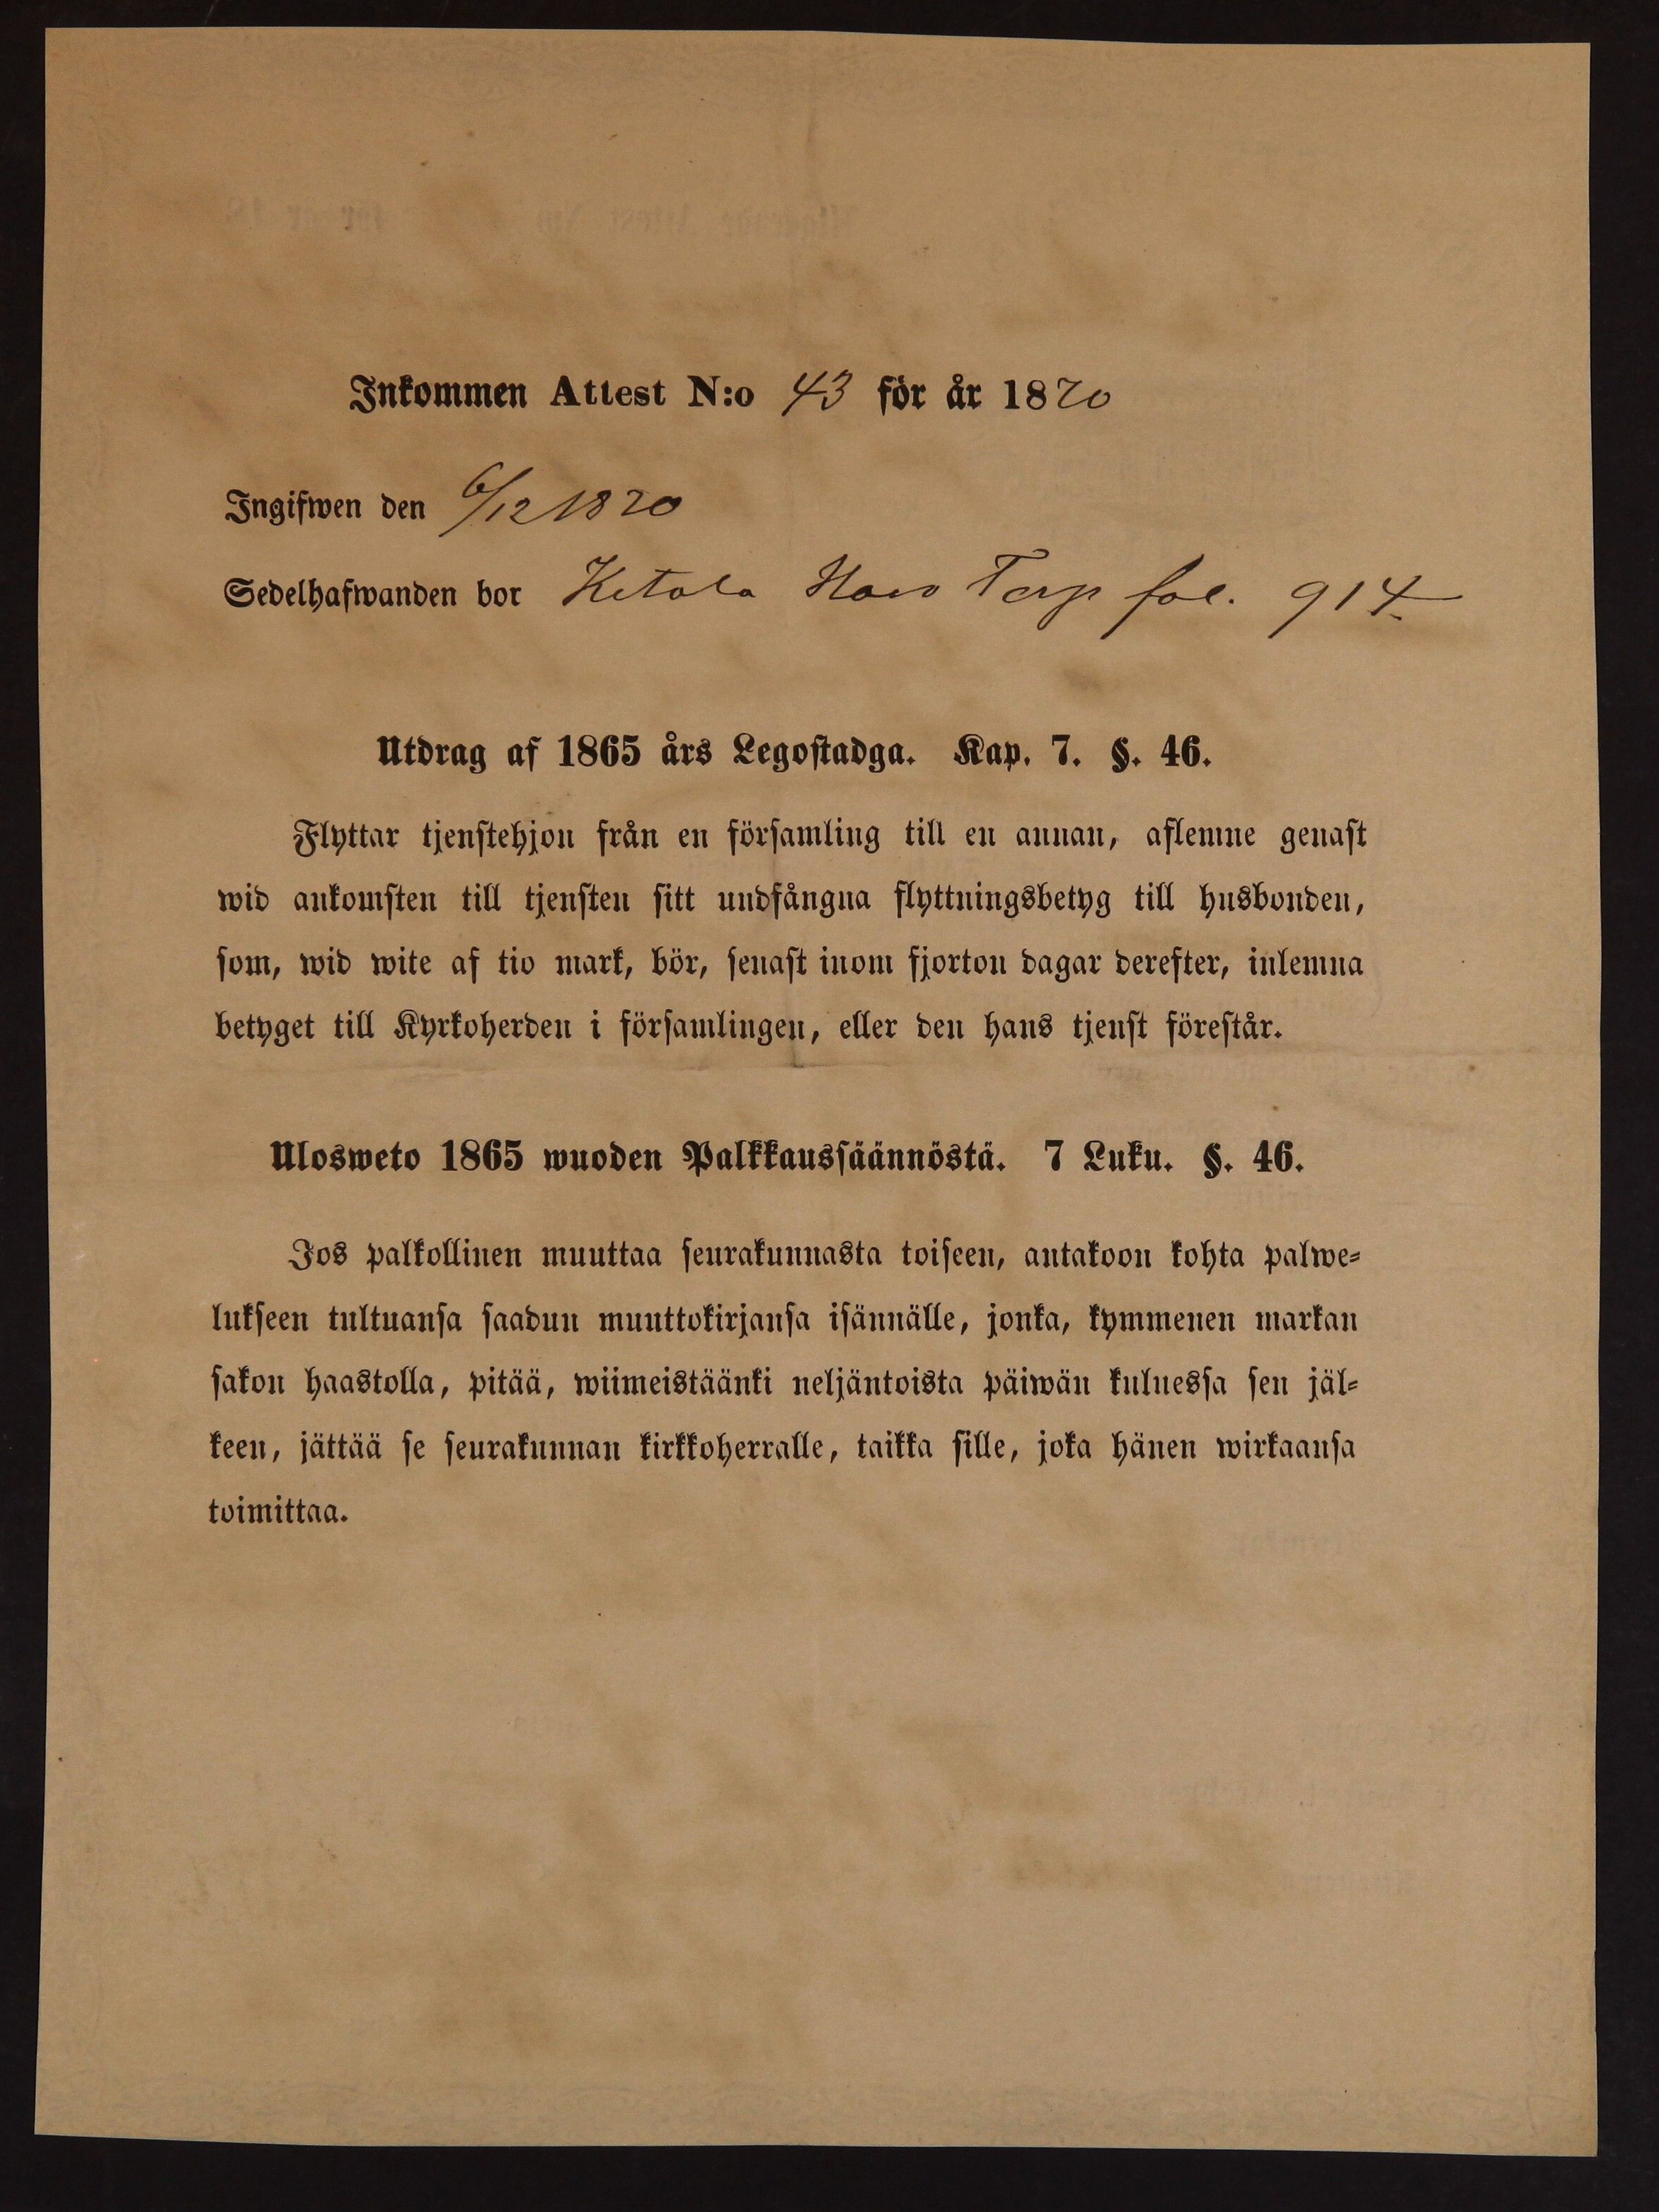 Inkommen Attest N:o 43 för år 1870
Ingifwen den 6/12 1870
Sedelhafwanden bor Ketola Torp fol. 914
Utdrag af 1865 års Legostadga. Kap. 7. §. 46.
Flyttar tjenstehjon från en församling till en annan, aflemne genast
wid ankomsten till tjensten sitt undfångna flyttningsbetyg till husbonden,
som, wid wite af tio mark, bör, senast inom fjorton dagar derefter, inlemna
betyget till Kyrkoherden i församlingen, eller den hans tjenst förestår.
Ulosweto 1865 wuoden Palkkaussäännöstä. 7 Luku. §. 46.
Jos palkollinen muuttaa seurakunnasta toiseen, antakoon kohta palwe-
lukseen tultuansa saadun muuttokirjansa isännälle, jonka, kymmenen markan
sakon haastolla, pitää, wiimeistäänki neljäntoista päiwän kuluessa sen jäl-
keen, jättää se seurakunnan kirkkoherralle, taikka sille, joka hänen wirkaansa
toimittaa.